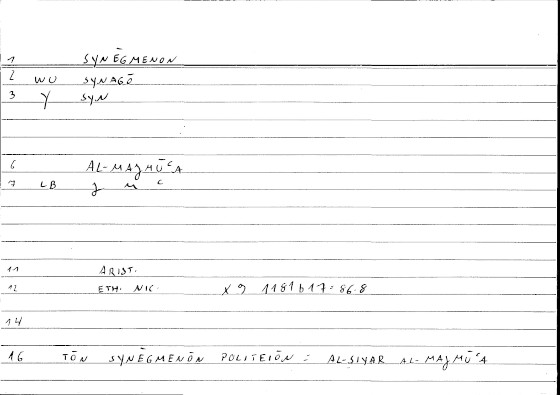 1 SYNĒGMENON
2 WU SYNAGŌ
3 Y SYN
6 AL-MAJMŪʿA
7 LB J M ʿ
11 ARIST.
12 ETH. NIC. X 9 1181b17 = 86.8
14
16 TŌN SYNĒGMENŌN POLITEIŌN = AL-SIYAR AL-MAJMŪʿA